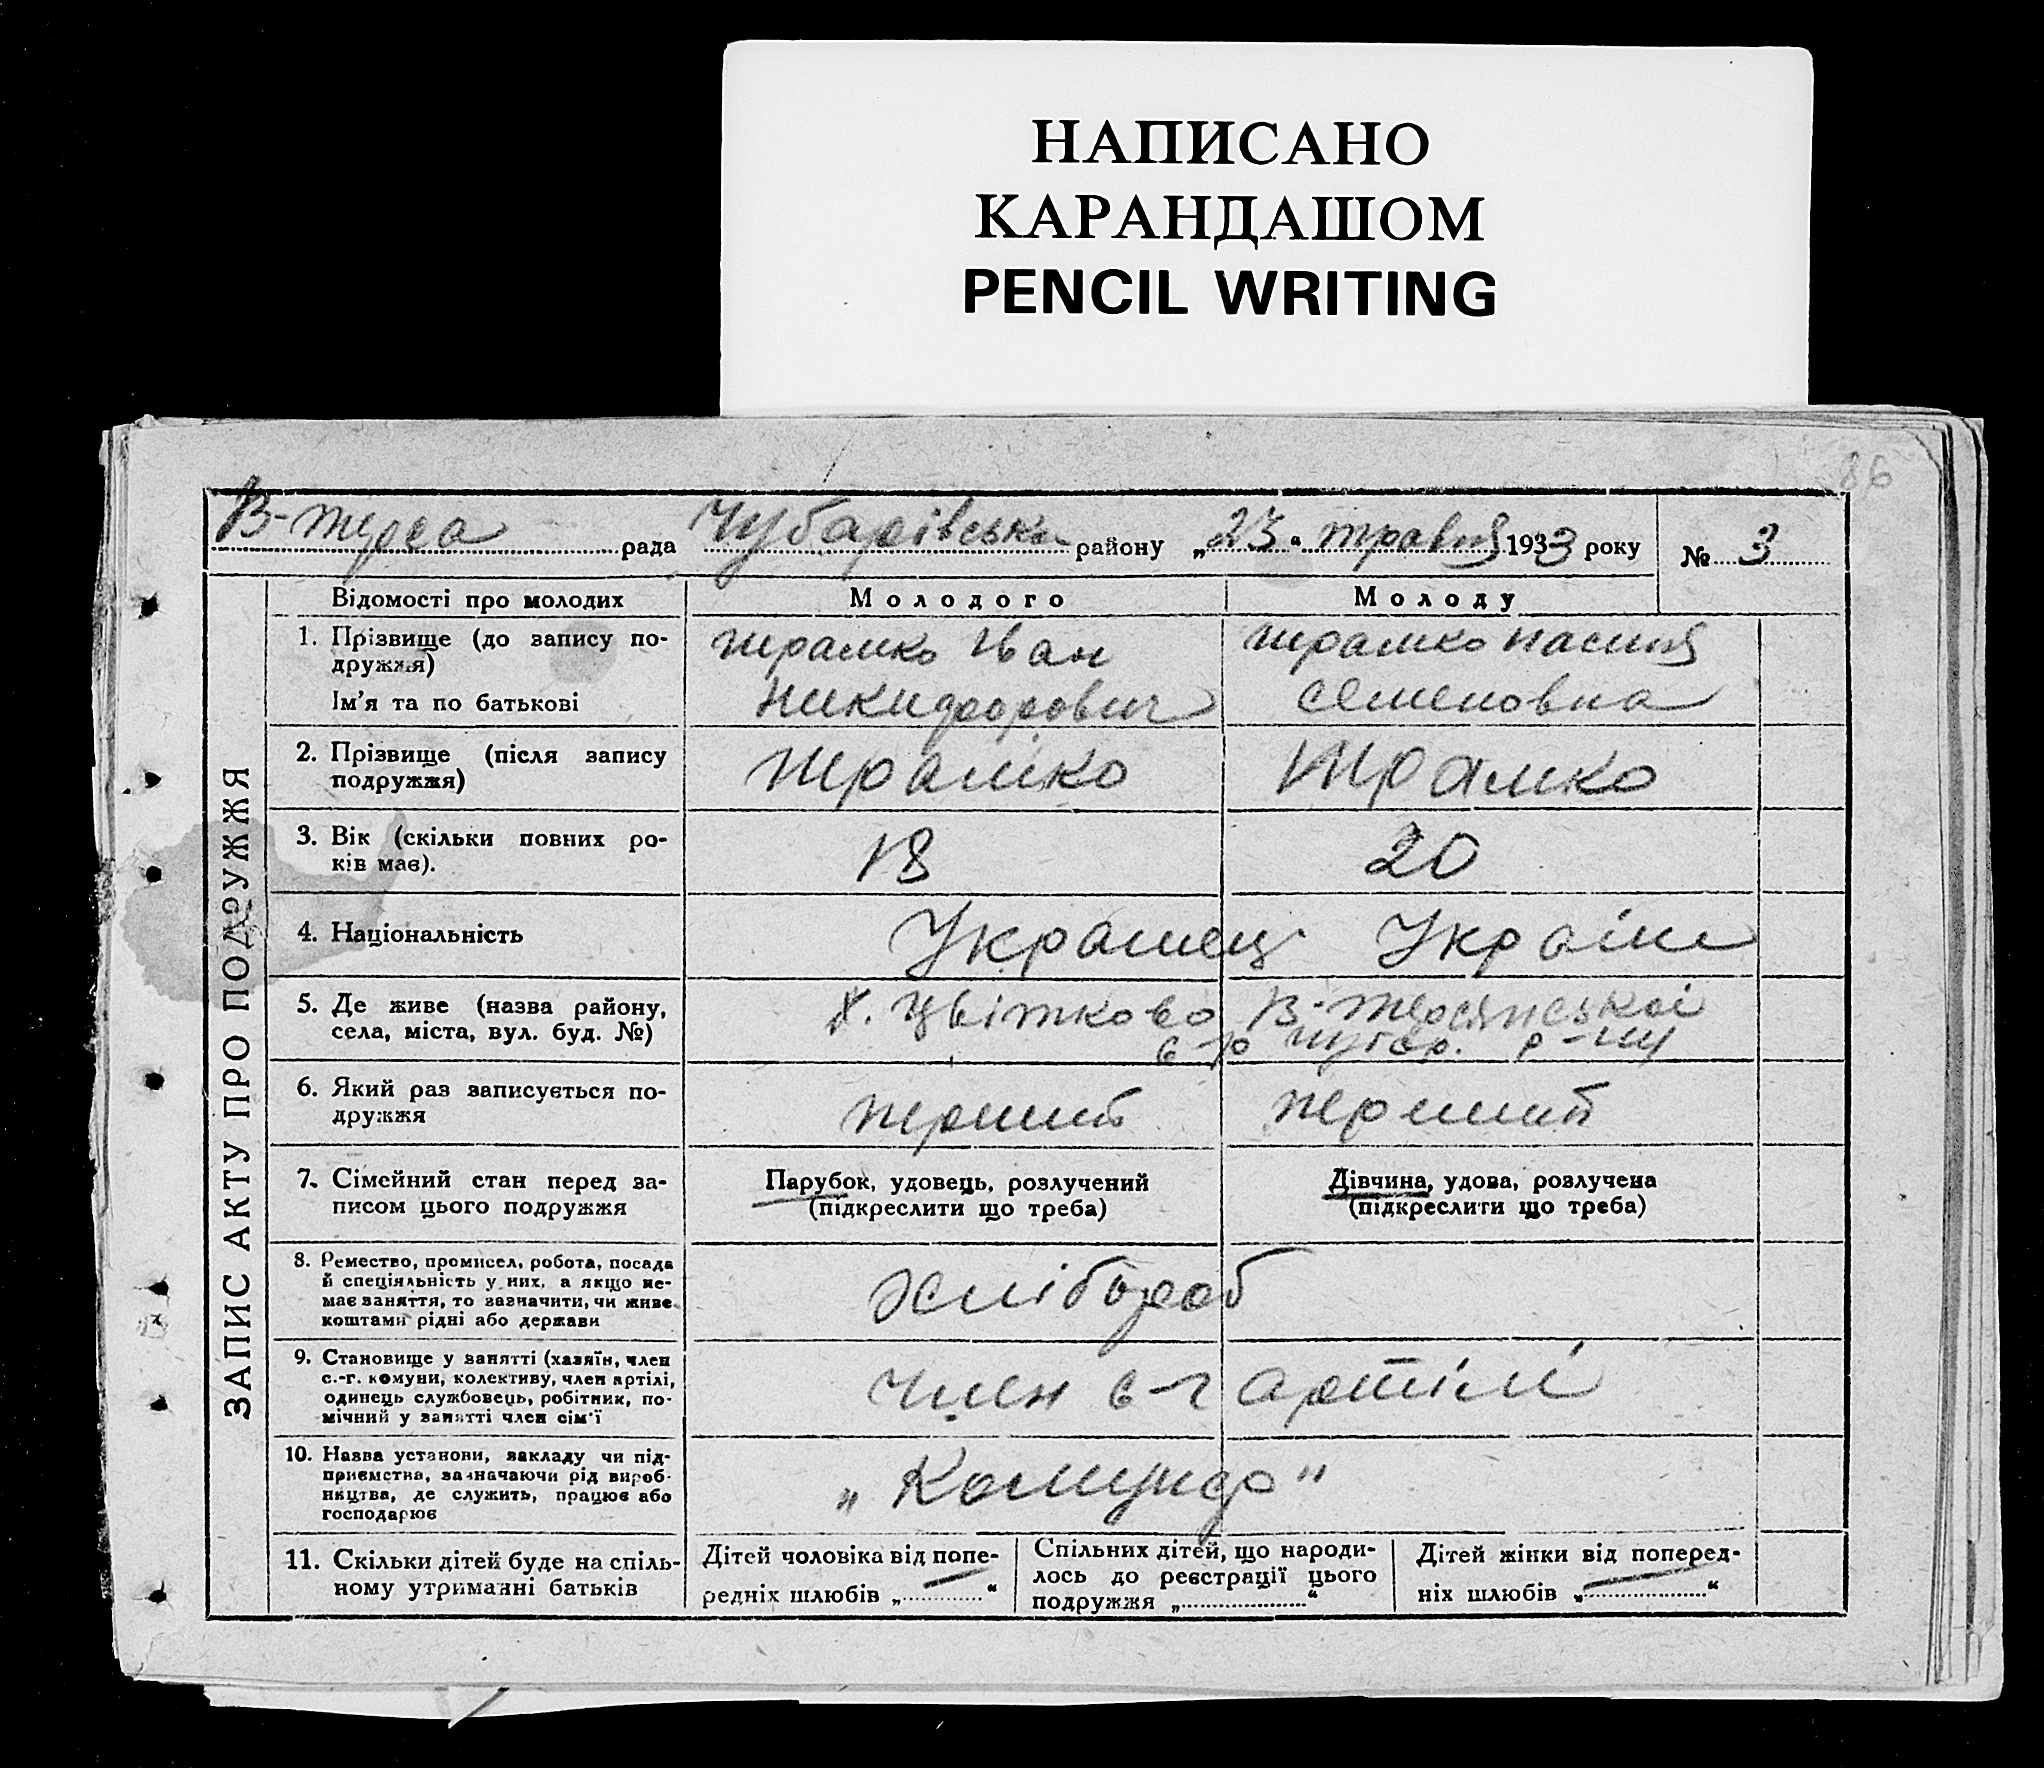 НАПИСАНО
КАРАНДАШОМ
PENCIL WRITING
86
В-терса рада Чубарівська району „23“ травня 1933 року № 3
ЗАПИС АКТУ ПРО ПОДРУЖЖЯ
Відомості про молодих Молодого Молоду
1. Прізвище (до запису по-
дружжя)
Ім'я та по батькові
Шрамко Іван
Никифорович
Шрамко Настя
Семеновна
2. Прізвище (після запису
подружжя)
Шрамко Шрамко
3. Вік (скільки повних ро-
ків має).
18 20
4. Національність Украинец Україн
5. Де живе (назва району,
села, міста, вул. буд. №)
х. Цвітково В-Терсянської
с-р Чубар. р-ну
6. Який раз записується по-
дружжя
перший перший
7. Сімейний стан перед за-
писом цього подружжя
Парубок, удовець, розлучений
(підкреслити що треба)
Дівчина, удова, розлучена
(підкреслити що треба)
8. Ремество, промисел, робота, посада
й спеціяльність у них, а якщо не-
має заняття, то зазначити, чи живе
коштами рідні або держави
хлібороб
9. Становище у занятті (хазяїн, член
с.-г. комуни, колективу, член артілі,
одинець службовець, робітник, по-
мічний у занятті член сім'ї
член с-г артілі
10. Назва установи, закладу чи під-
приємства, зазначаючи рід вироб-
ництва, де служить, працює або
господарює
11. Скільки дітей буде на спіль-
ному утриманні батьків
Дітей чоловіка від попе-
редніх шлюбів „ “
Спільних дітей, що народи-
лось до реєстрації цього
подружжя „ “
Дітей жінки від поперед-
ніх шлюбів „ “